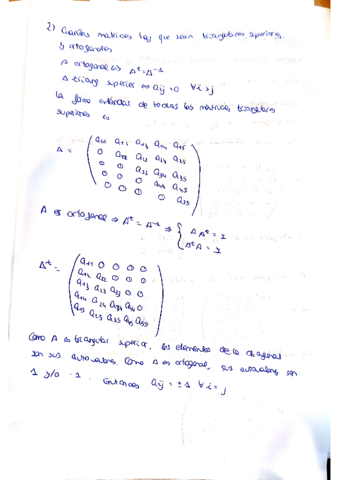 2) Cuántas matrices hay que sean triangulares superiores
y ortogonales
A ortogonal ⇔ A^t = A^-1
A triang superior ⇔ aij = 0 ∀ i > j
La forma estándar de todas las matrices triangulares
superiores es
A = ( a11 a12 a13 a14 a15
0 a22 a23 a24 a25
0 0 a33 a34 a35
0 0 0 a44 a45
0 0 0 0 a55 )
A es ortogonal ⇒ A^t = A^-1 ⇒ { A A^t = I
A^t A = I
A^t = ( a11 0 0 0 0
a12 a22 0 0 0
a13 a23 a33 0 0
a14 a24 a34 a44 0
a15 a25 a35 a45 a55 )
Como A es triangular superior, los elementos de la diagonal
son sus autovalores. Como A es ortogonal, sus autovalores son
1 y/o -1. Entonces aij = ±1 ∀ i = j